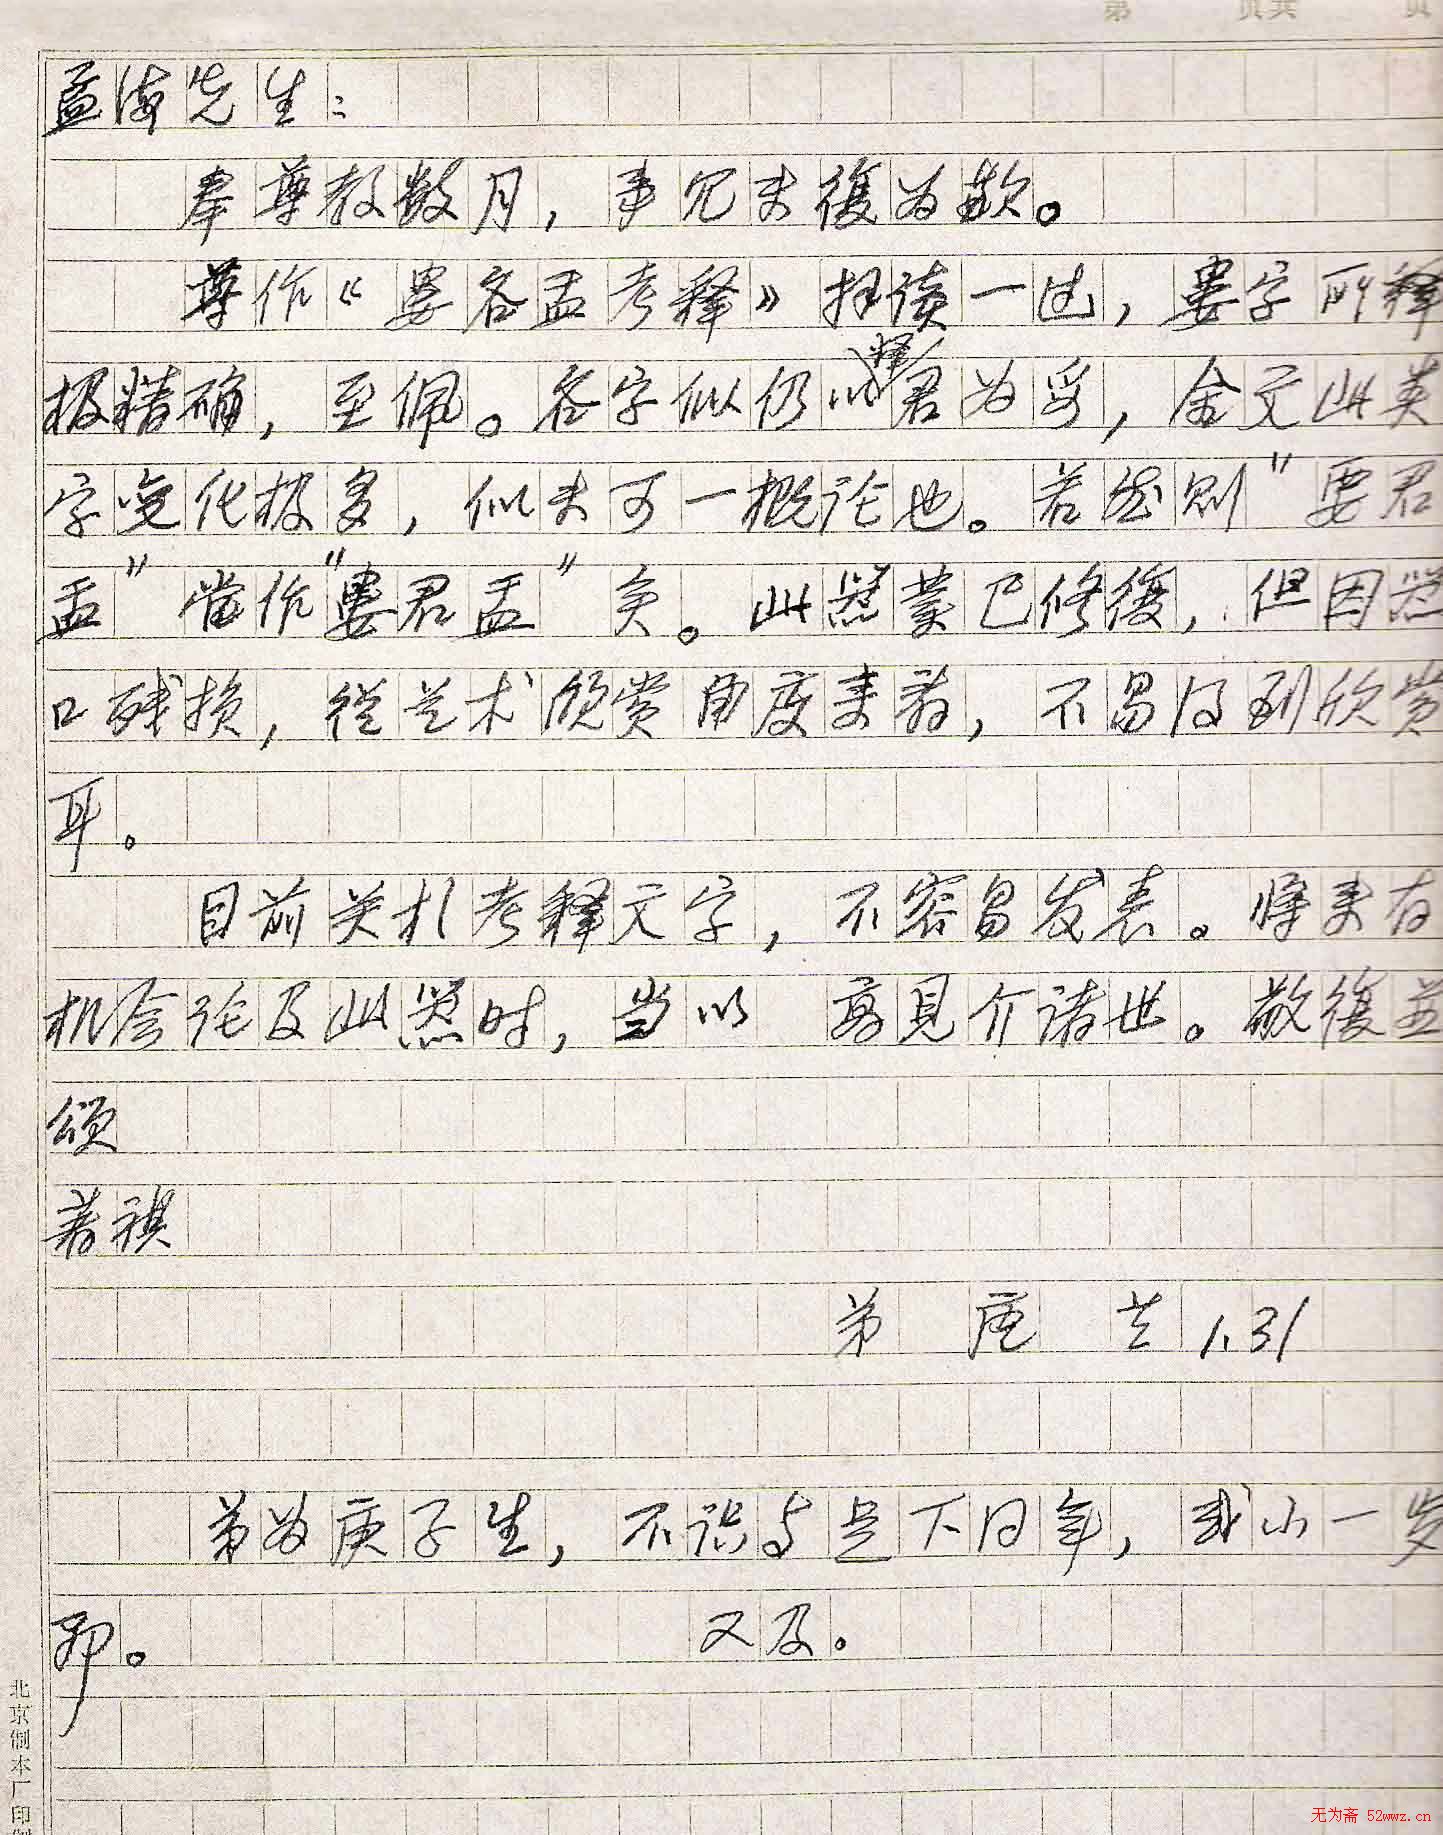 第 页共 页
孟海先生：
奉尊教数月，事冗未復为歉。
尊作《婁各盂考释》拜读一过，婁字所释
极精确，至佩。各字似仍以释君为妥，金文此类
字变化极多，似未可一概论也。若然则"要君
盂"当作"婁君盂"矣。此器业已修復，但因器
口残损，從艺术欣赏角度来看，不易得到欣赏
耳。
目前关于考释文字，不容易发表。将来有
机会论及此器时，当以 高見介诸世。敬復並
颂
著祺
弟 唐兰 1.31
弟为庚子生，不识与足下同年，或小一岁
耶。 又及。
北京制本厂印制
无为斋 52wwz.cn